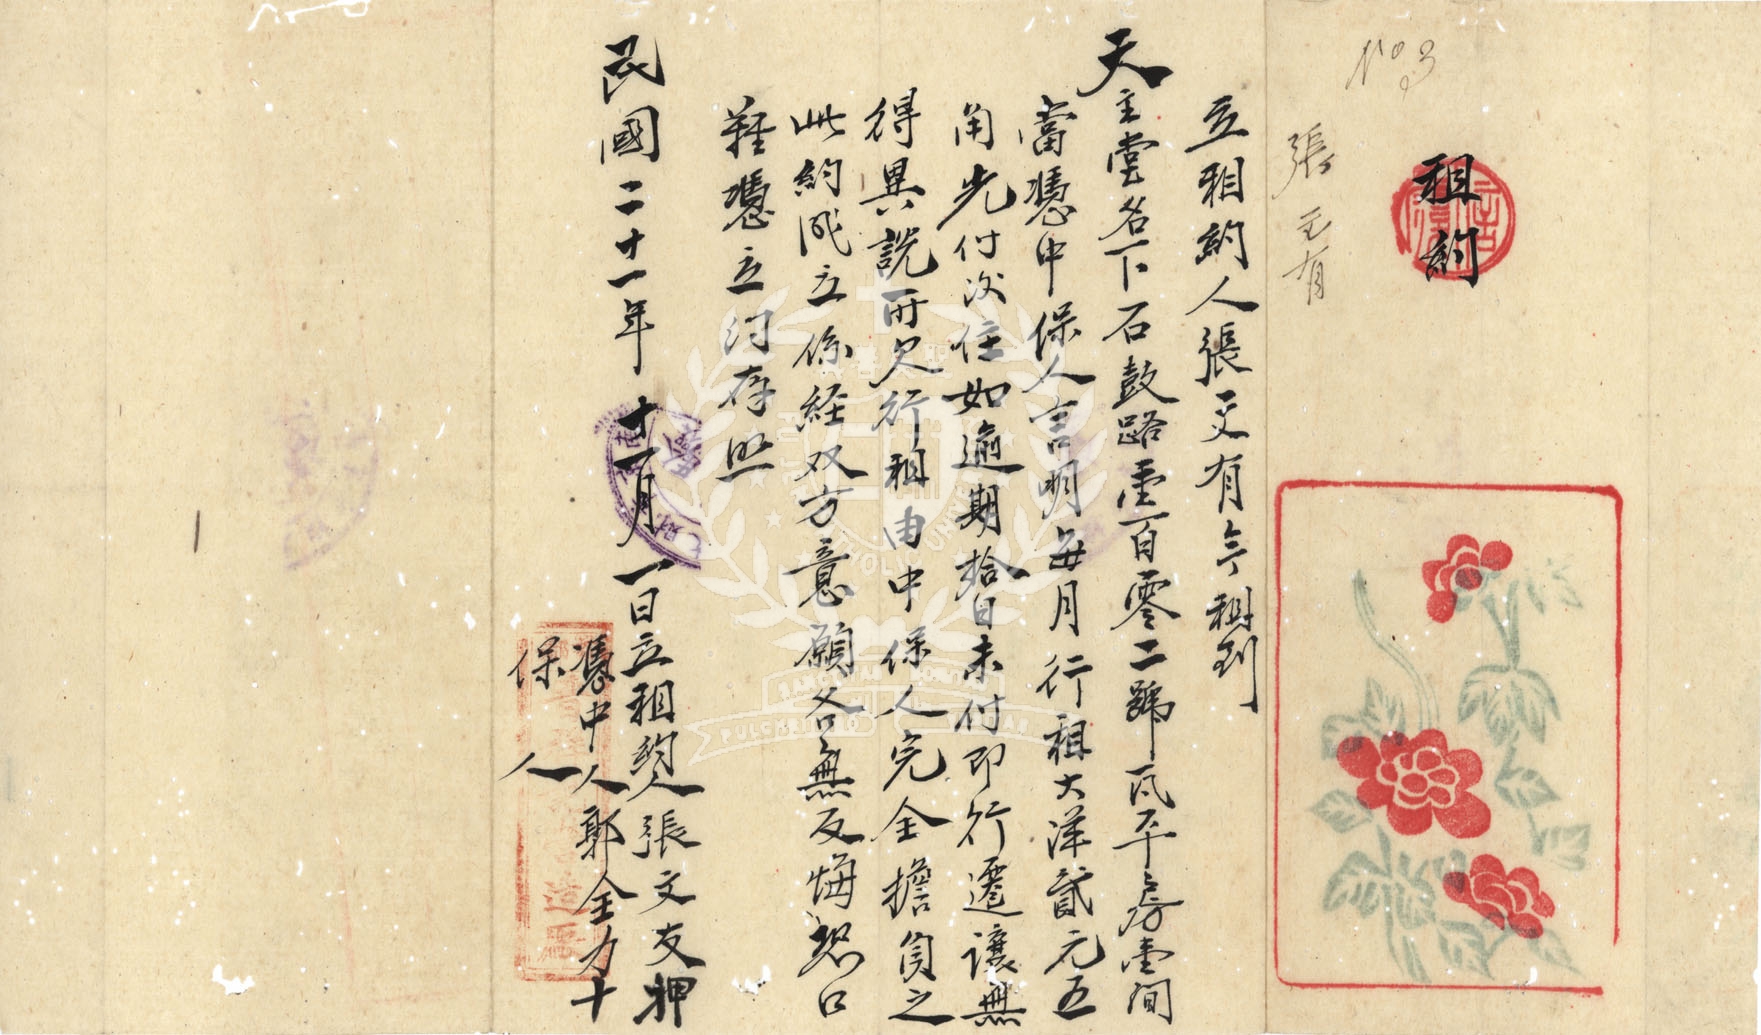 No 3
租約
張文有
立租約人張文有今租到
天主堂名下石鼓路壹百零二號瓦平房壹間
當憑中保人言明每月行租大洋貳元五
角先付後住如逾期拾日未付即行遷讓無
得異說所欠行租由中保人完全擔負之
此約成立係經双方意願各無反悔恐口
難憑立約存照
民國二十一年十一月一日立租約人張文友押
憑中人郭全力十
保人